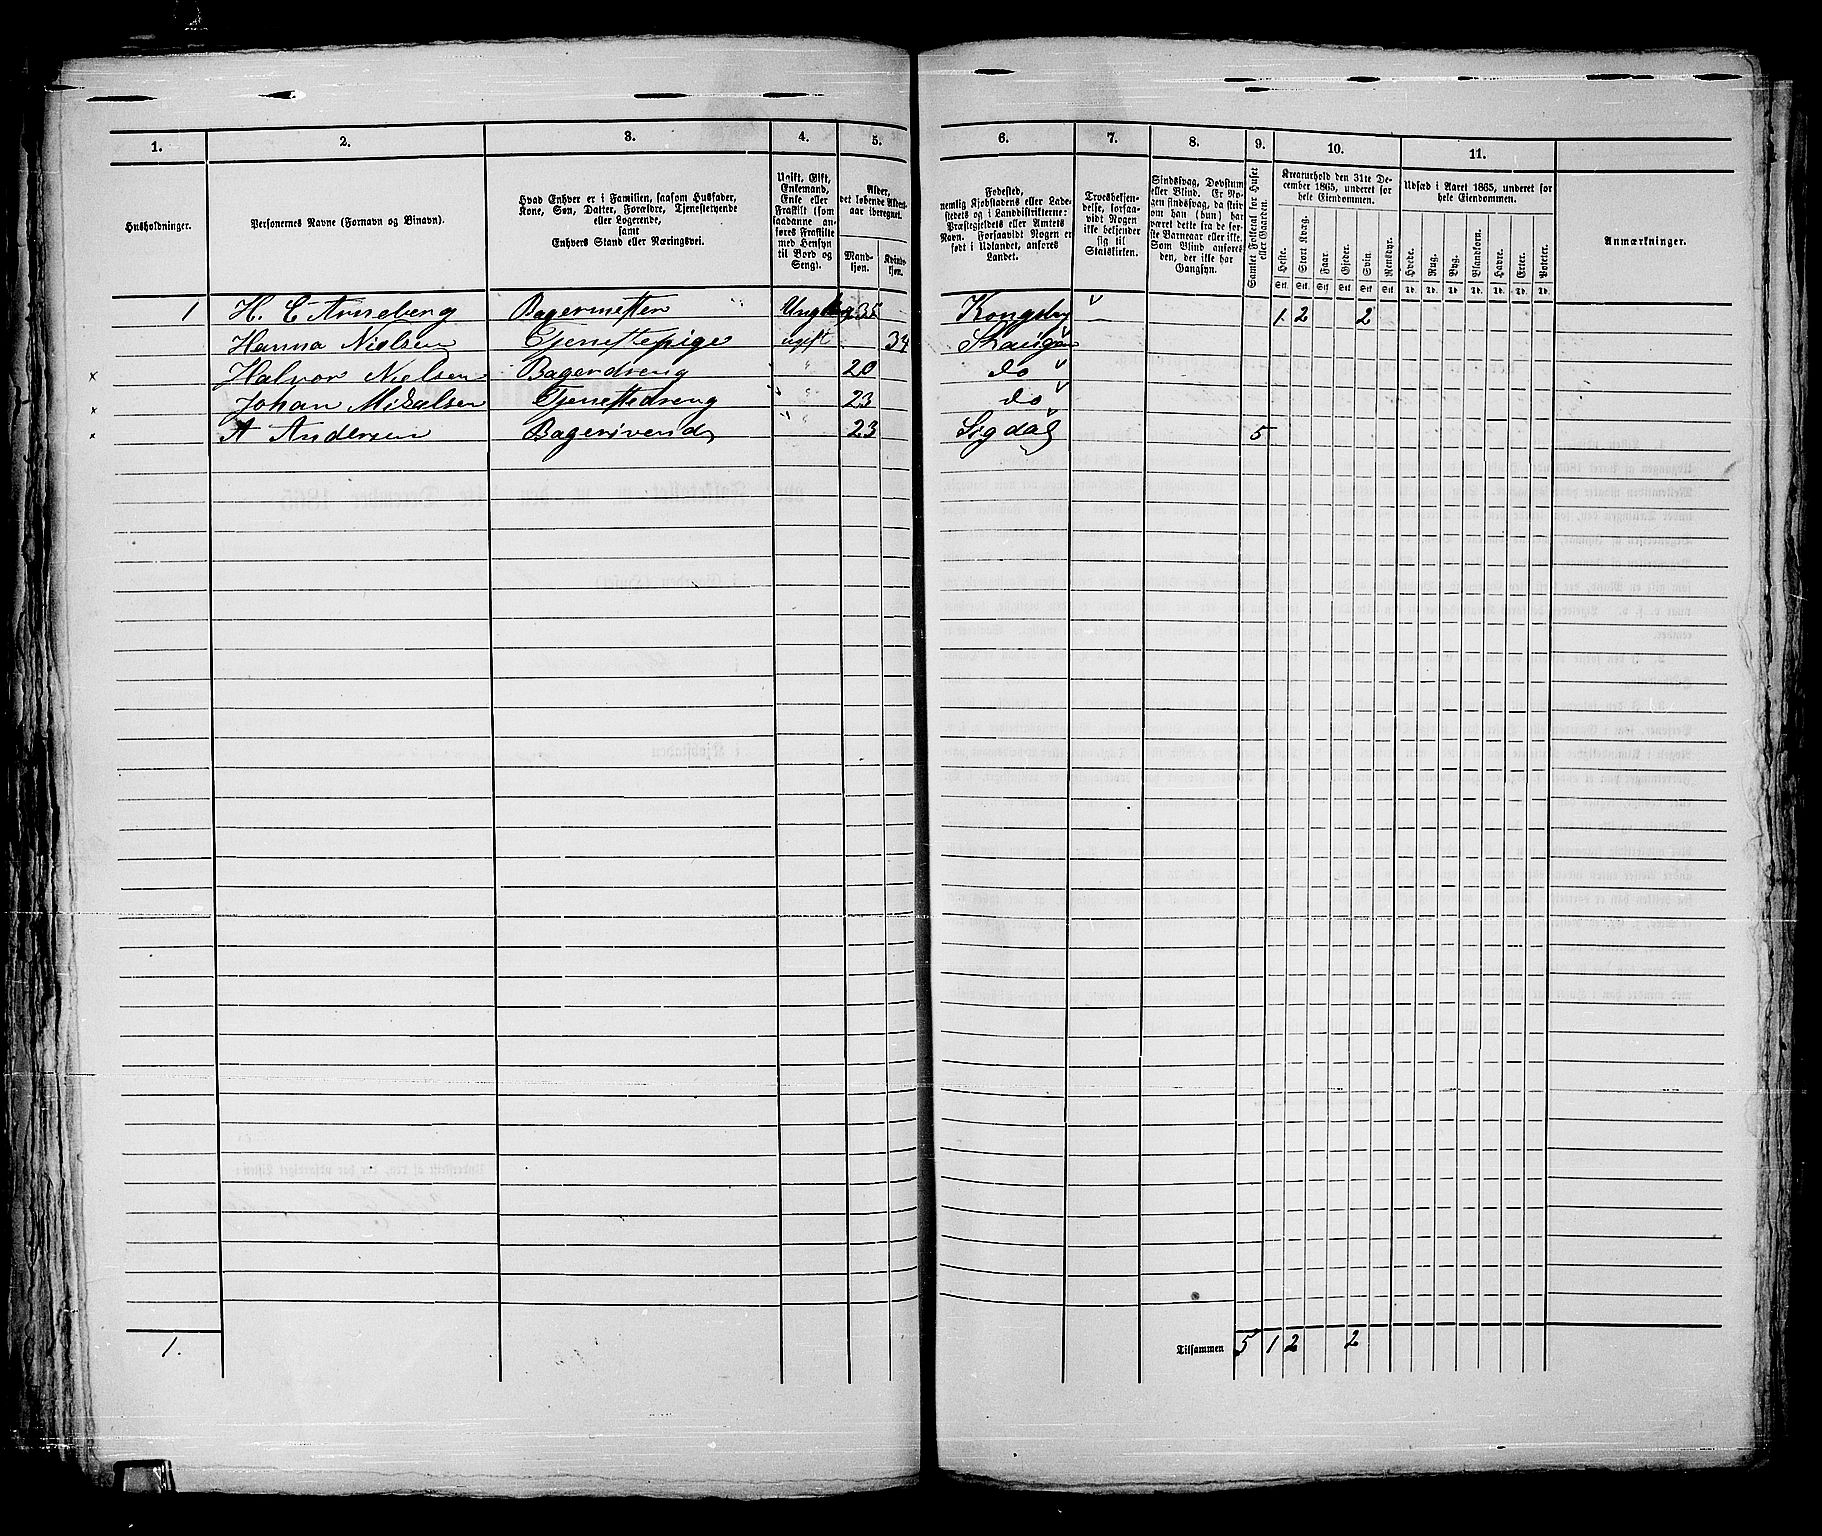 1. 2. 3. 4. 5. 6. 7. 8. 9. 10. 11.
Husholdninger.
Personernes Navne (Fornavn og Binavn).
Hvad Enhver er i Familien, saasom Husfader,
Kone, Søn, Datter, Forældre, Tjenestetyende
eller Logerende,
samt
Enhvers Stand eller Næringsvei.
Ugift, Gift,
Enkemand,
Enke eller
Fraskilt (som
saadanne an-
føres Fraskilte
med Hensyn
til Bord og
Seng).
Alder,
det løbende Alders-
aar iberegnet.
Mand-
kjøn.
Kvinde-
kjøn.
Fødested,
nemlig Kjøbstadens eller Lade-
stedets og i Landdistrikterne:
Præstegjeldets eller Amtets
Navn. Forsaavidt Nogen er
født i Udlandet, anføres
Landet.
Troesbekjen-
delse, forsaa-
vidt Nogen
ikke bekjender
sig til
Statskirken.
Sindssvag, Døvstum
eller Blind. Er No-
gen sindssvag, da skriv
om han (hun) har
været dette fra de før-
ste Barneaar eller ikke.
Som Blind anføres
den, der ikke har
Gangsyn.
Samlet Folketal for Huset
eller Gaarden.
Kreaturhold den 31te De-
cember 1865, underet for
hele Eiendommen.
Heste. Stort Kvæg. Faar. Gjeder. Svin. Rensdyr.
Stk. Stk. Stk. Stk. Stk. Stk.
Udsæd i Aaret 1865, underet for
hele Eiendommen.
Hvede. Rug. Byg. Blandkorn. Havre. Erter. Poteter.
Td. Td. Td. Td. Td. Td. Td.
Anmærkninger.
1 H. C Arneberg Bagermester 35 Kongsbg 1 2 2
Hanna Nielsen Tjenestepige ugift 34
x Halvor Nielsen Bagerdreng " 20 do
x Johan Mikalsen Tjenestedreng " 23 do
x A Andersen Bagerivend " 23 Sigdal 5
1. Tilsammen 5 1 2 2